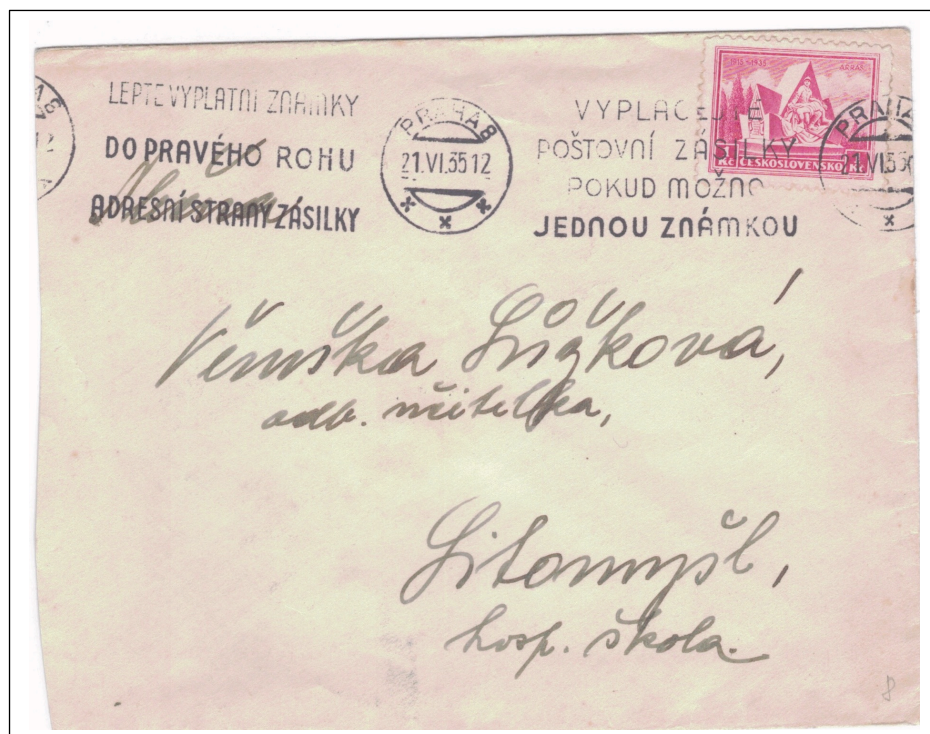 LEPTE VÝPLATNÍ ZNÁMKY
DO PRAVÉHO ROHU
ADRESNÍ STRANY ZÁSILKY
PRAHA 8
21.VI.35 12
VYPLACUJTE
POŠTOVNÍ ZÁSILKY
POKUD MOŽNO
JEDNOU ZNÁMKOU
1915-1935 ARRAS
1 Kč ČESKOSLOVENSKO 1 Kč
PRAHA
21.VI.35
Věruška Lůžková,
odb. učitelka,
Litomyšl,
hosp. škola.
8